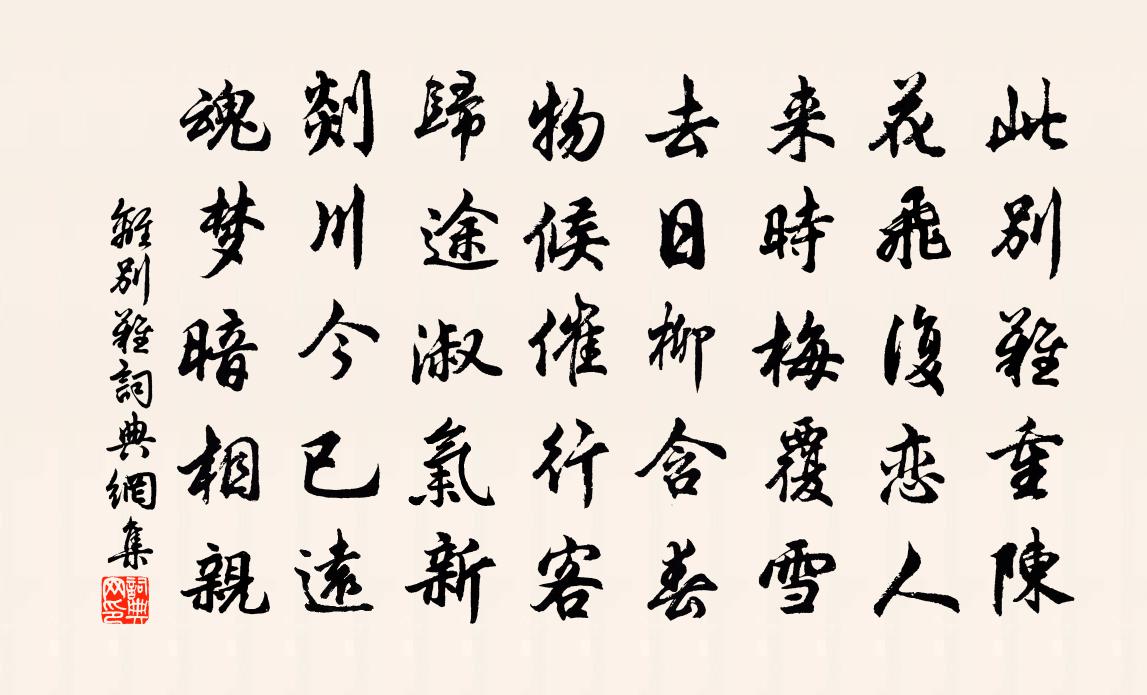 此别難重陳
花飛復恋人
来時梅覆雪
去日柳含春
物候催行客
歸途淑氣新
剡川今已遠
魂梦暗相親
離別難詞典網集
詞典网印